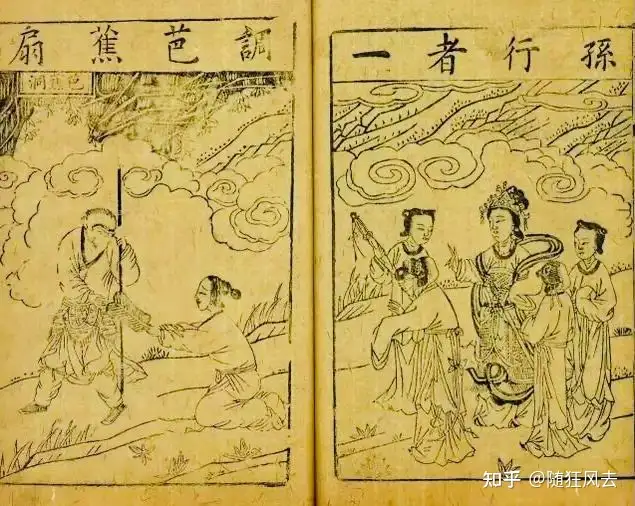 孫行者一
調芭蕉扇
芭蕉洞
知乎 @随狂风去